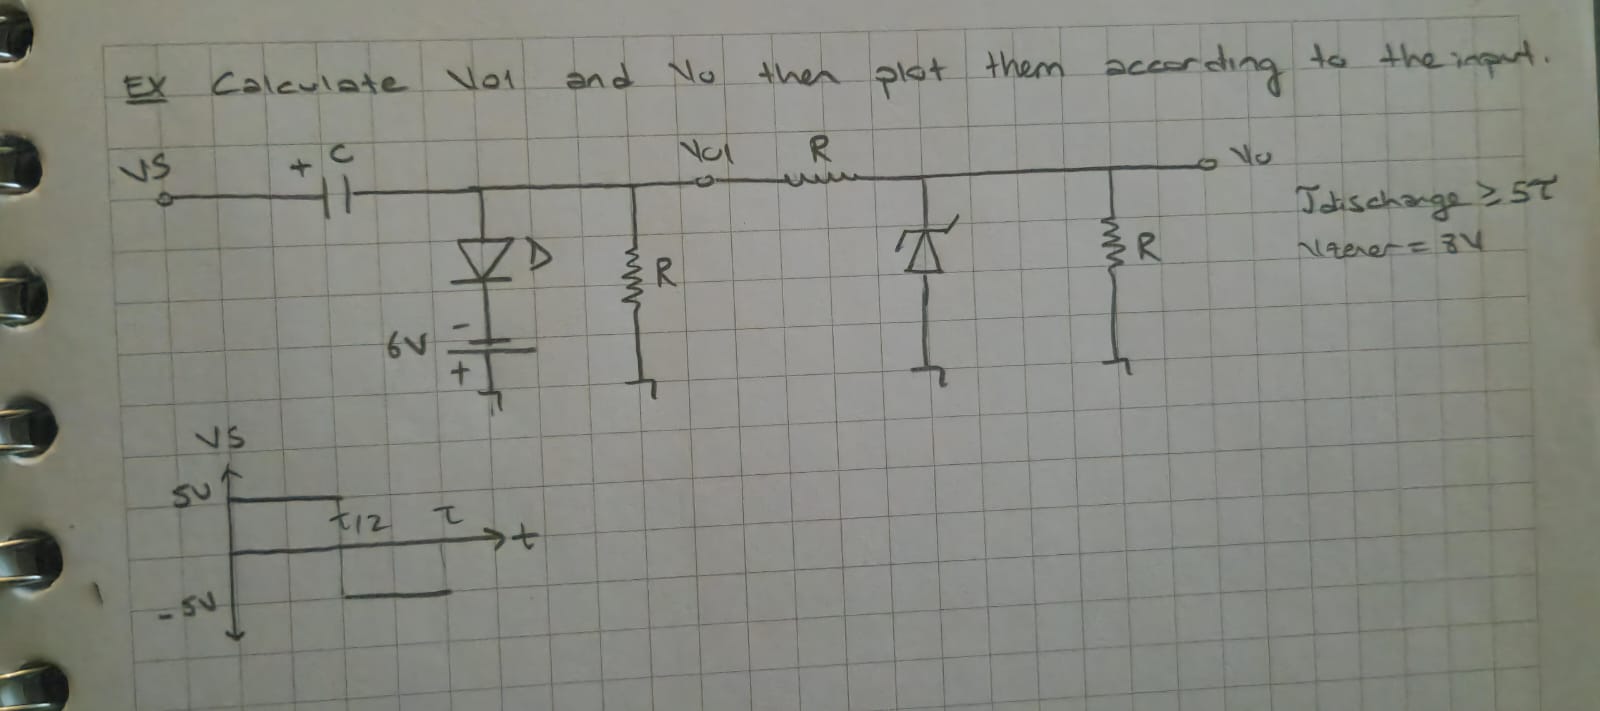 EX Calculate Vo1 and Vo then plot them according to the input.
VS + C Vo1 R Vo
Tdischarge ≥ 5τ
Vzener = 3V
D R R
6V - +
VS
5V
τ/2 τ t
-5V